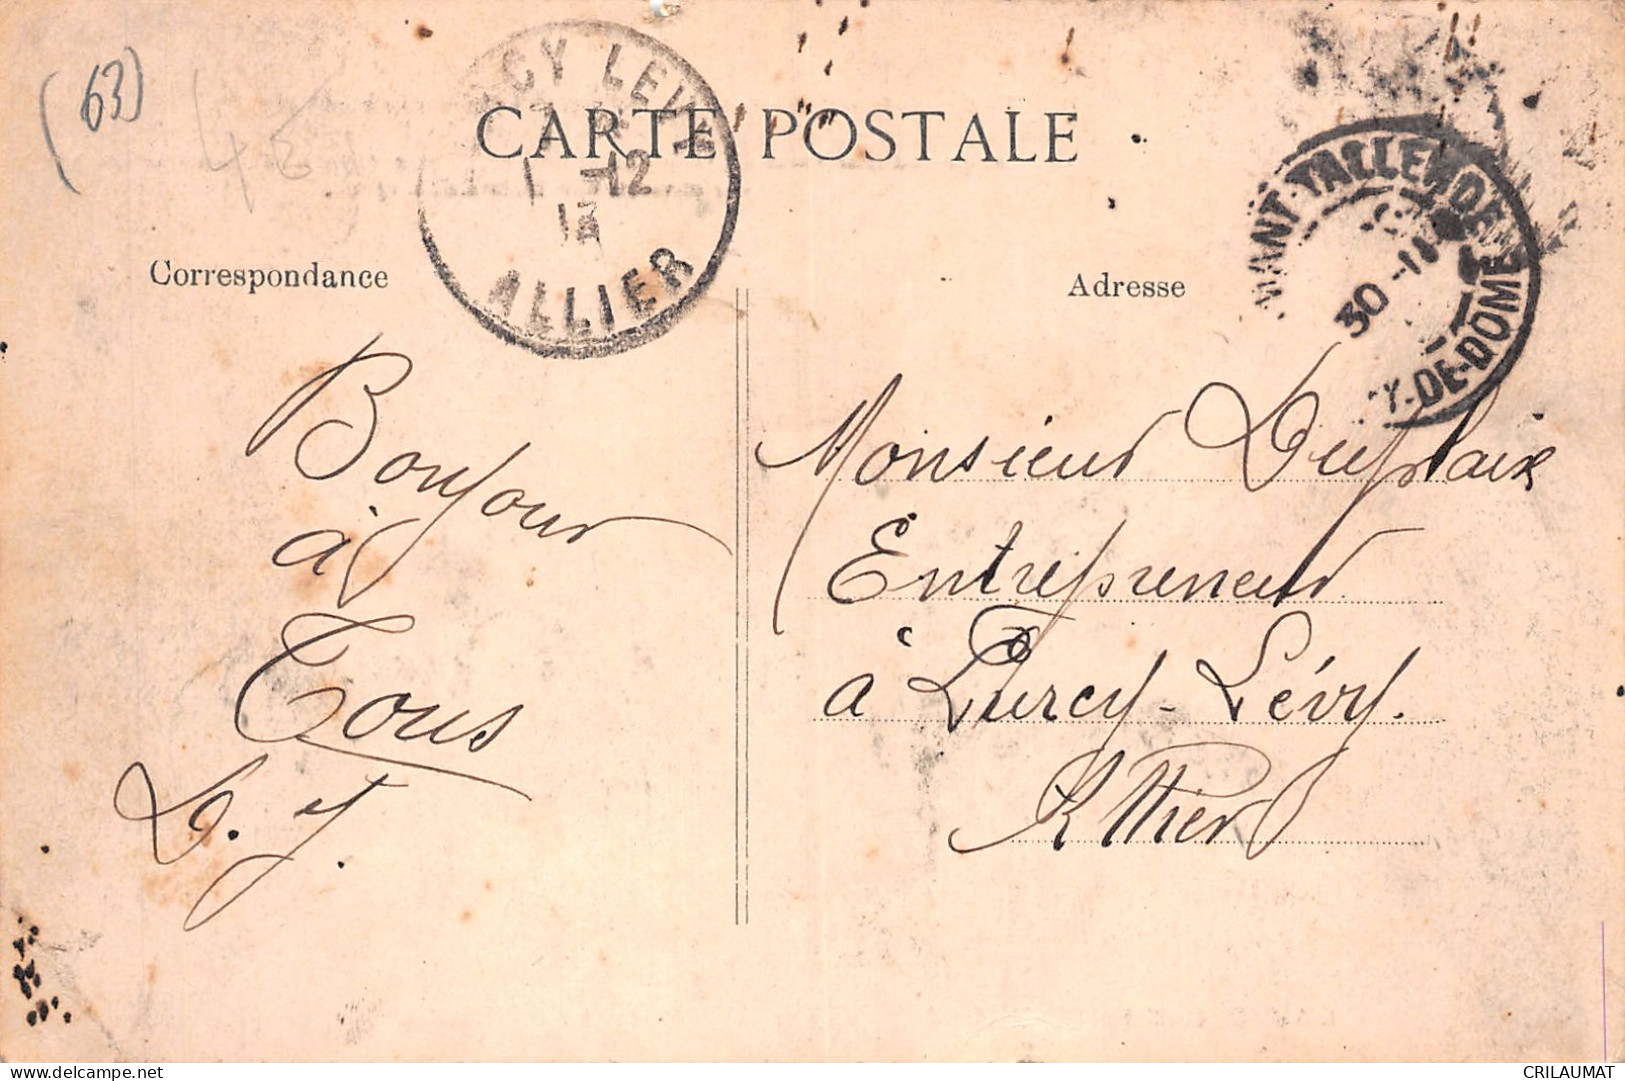 (63)
4 €
CARTE POSTALE
CY LEVY
1 -12
13
ALLIER
TALLENDE
30 -11
Y-DE-DOME
Correspondance
Adresse
Bonjour
à
Tous
L. J.
Monsieur Duplaix
Entrepreneur
à Lurcy-Lévy.
Allier
CRILAUMAT